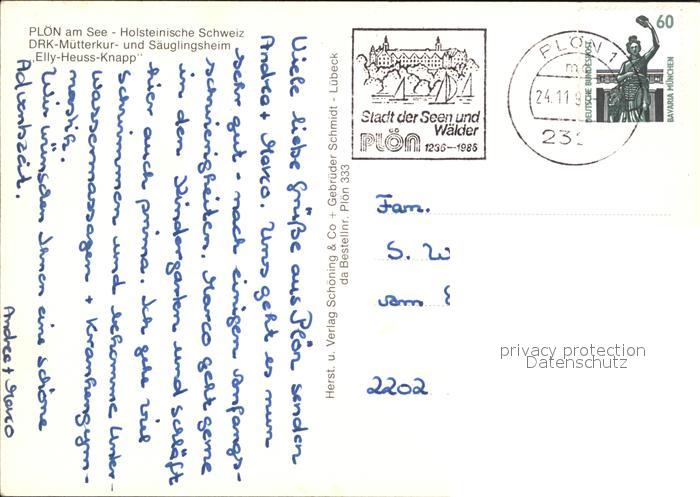 PLÖN am See - Holsteinische Schweiz
DRK-Mütterkur- und Säuglingsheim
„Elly-Heuss-Knapp"
Viele liebe Grüße aus Plön senden
Andrea + Marco. Uns geht es nun
sehr gut - nach einigen Anfangs-
schwierigkeiten. Marco geht gerne
in den Kindergarten und schläft
hier auch prima. Ich gehe viel
schwimmen und bekomme Unter-
wassermassagen + Krankengym-
nastik.
Wir wünschen Ihnen eine schöne
Adventszeit.
Andrea + Marco
Herst. u. Verlag Schöning & Co + Gebrüder Schmidt - Lübeck
da Bestellnr. Plön 333
Stadt der Seen und
Wälder
PLÖN 1236-1986
PLÖN 1
m
24.11.8
232
60
DEUTSCHE BUNDESPOST
BAVARIA MÜNCHEN
Fam.
S. W
Am
2202
privacy protection
Datenschutz